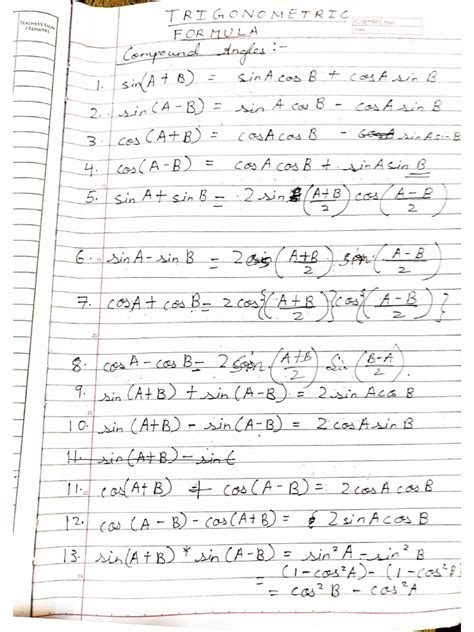 TEACHER'S SIGN
/ REMARKS
TRIGONOMETRIC
FORMULA
Compound Angles :-
1. sin(A + B) = sinA cos B + cosA sin B
2. sin (A-B) = sin A cos B - cosA sin B
3. cos (A+B) = cosA cos B - cosA sinA sin B
4. cos(A-B) = cosA cos B + sinA sin B
5. sin A + sin B = 2 sin (A+B/2) cos (A-B/2)
6. sin A - sin B = 2 cos (A+B/2) sin (A-B/2)
7. cosA + cos B = 2 cos{(A+B/2)} cos{(A-B/2)}
8. cosA - cos B = 2 sin (A+B/2) Sin (B-A/2).
9. sin (A+B) + sin (A-B) = 2 sin A cos B
10. sin (A+B) - sin (A-B) = 2 cos A sin B
11. sin (A+B) - sin (
11. cos(A+B) + cos (A-B) = 2 cosA cos B
12. cos (A-B) - cos(A+B) = 2 sin A cos B
13. sin(A+B) * sin (A-B) = sin²A - sin²B
= (1-cos²A) - (1-cos²B)
= cos²B - cos²A